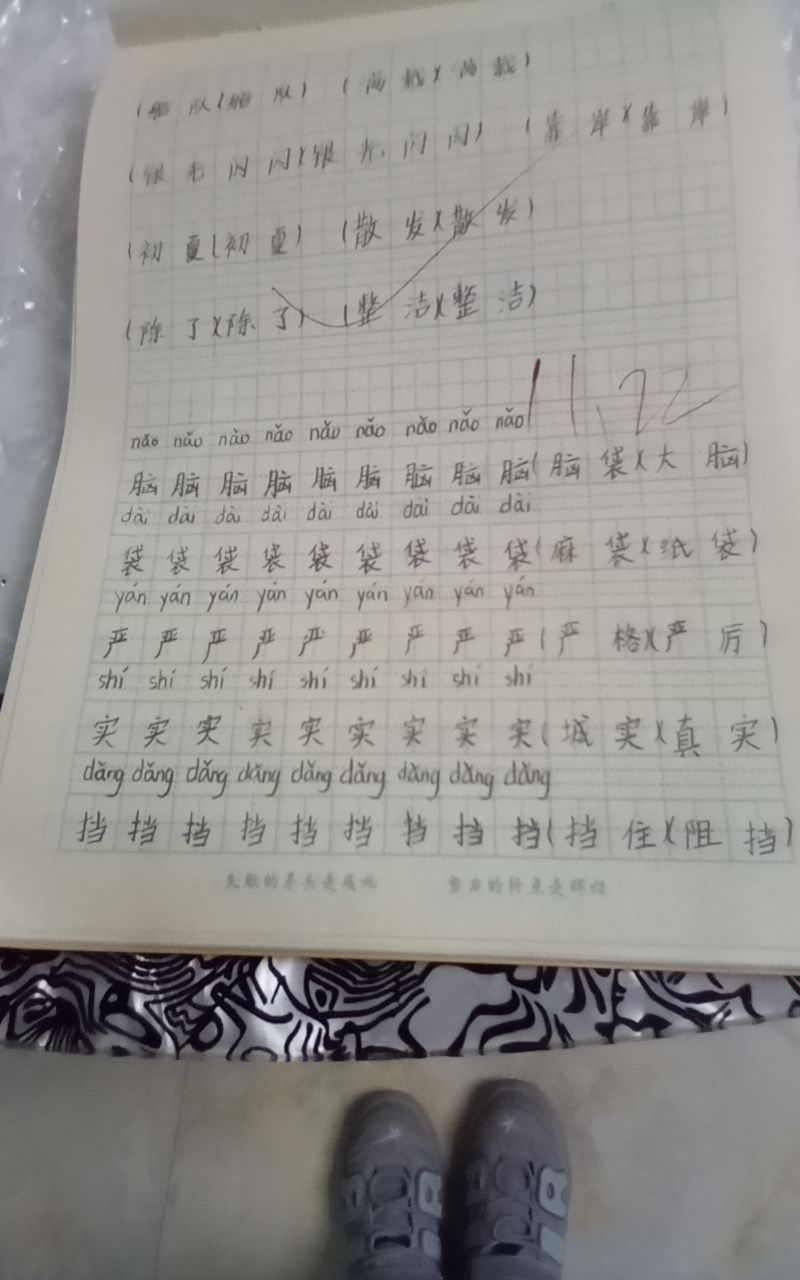 (船队)(船队) (满载)(满载)
(银光闪闪)(银光闪闪) (靠岸)(靠岸)
(初夏)(初夏) (散发)(散发)
(除了)(除了) (整洁)(整洁)
11.22
nǎo nǎo nǎo nǎo nǎo nǎo nǎo nǎo nǎo
脑 脑 脑 脑 脑 脑 脑 脑 脑(脑袋)(大脑)
dài dài dài dài dài dài dài dài dài
袋 袋 袋 袋 袋 袋 袋 袋 袋(麻袋)(纸袋)
yán yán yán yán yán yán yán yán yán
严 严 严 严 严 严 严 严 严(严格)(严厉)
shí shí shí shí shí shí shí shí shí
实 实 实 实 实 实 实 实 实(城实)(真实)
dǎng dǎng dǎng dǎng dǎng dǎng dǎng dǎng dǎng
挡 挡 挡 挡 挡 挡 挡 挡 挡(挡住)(阻挡)